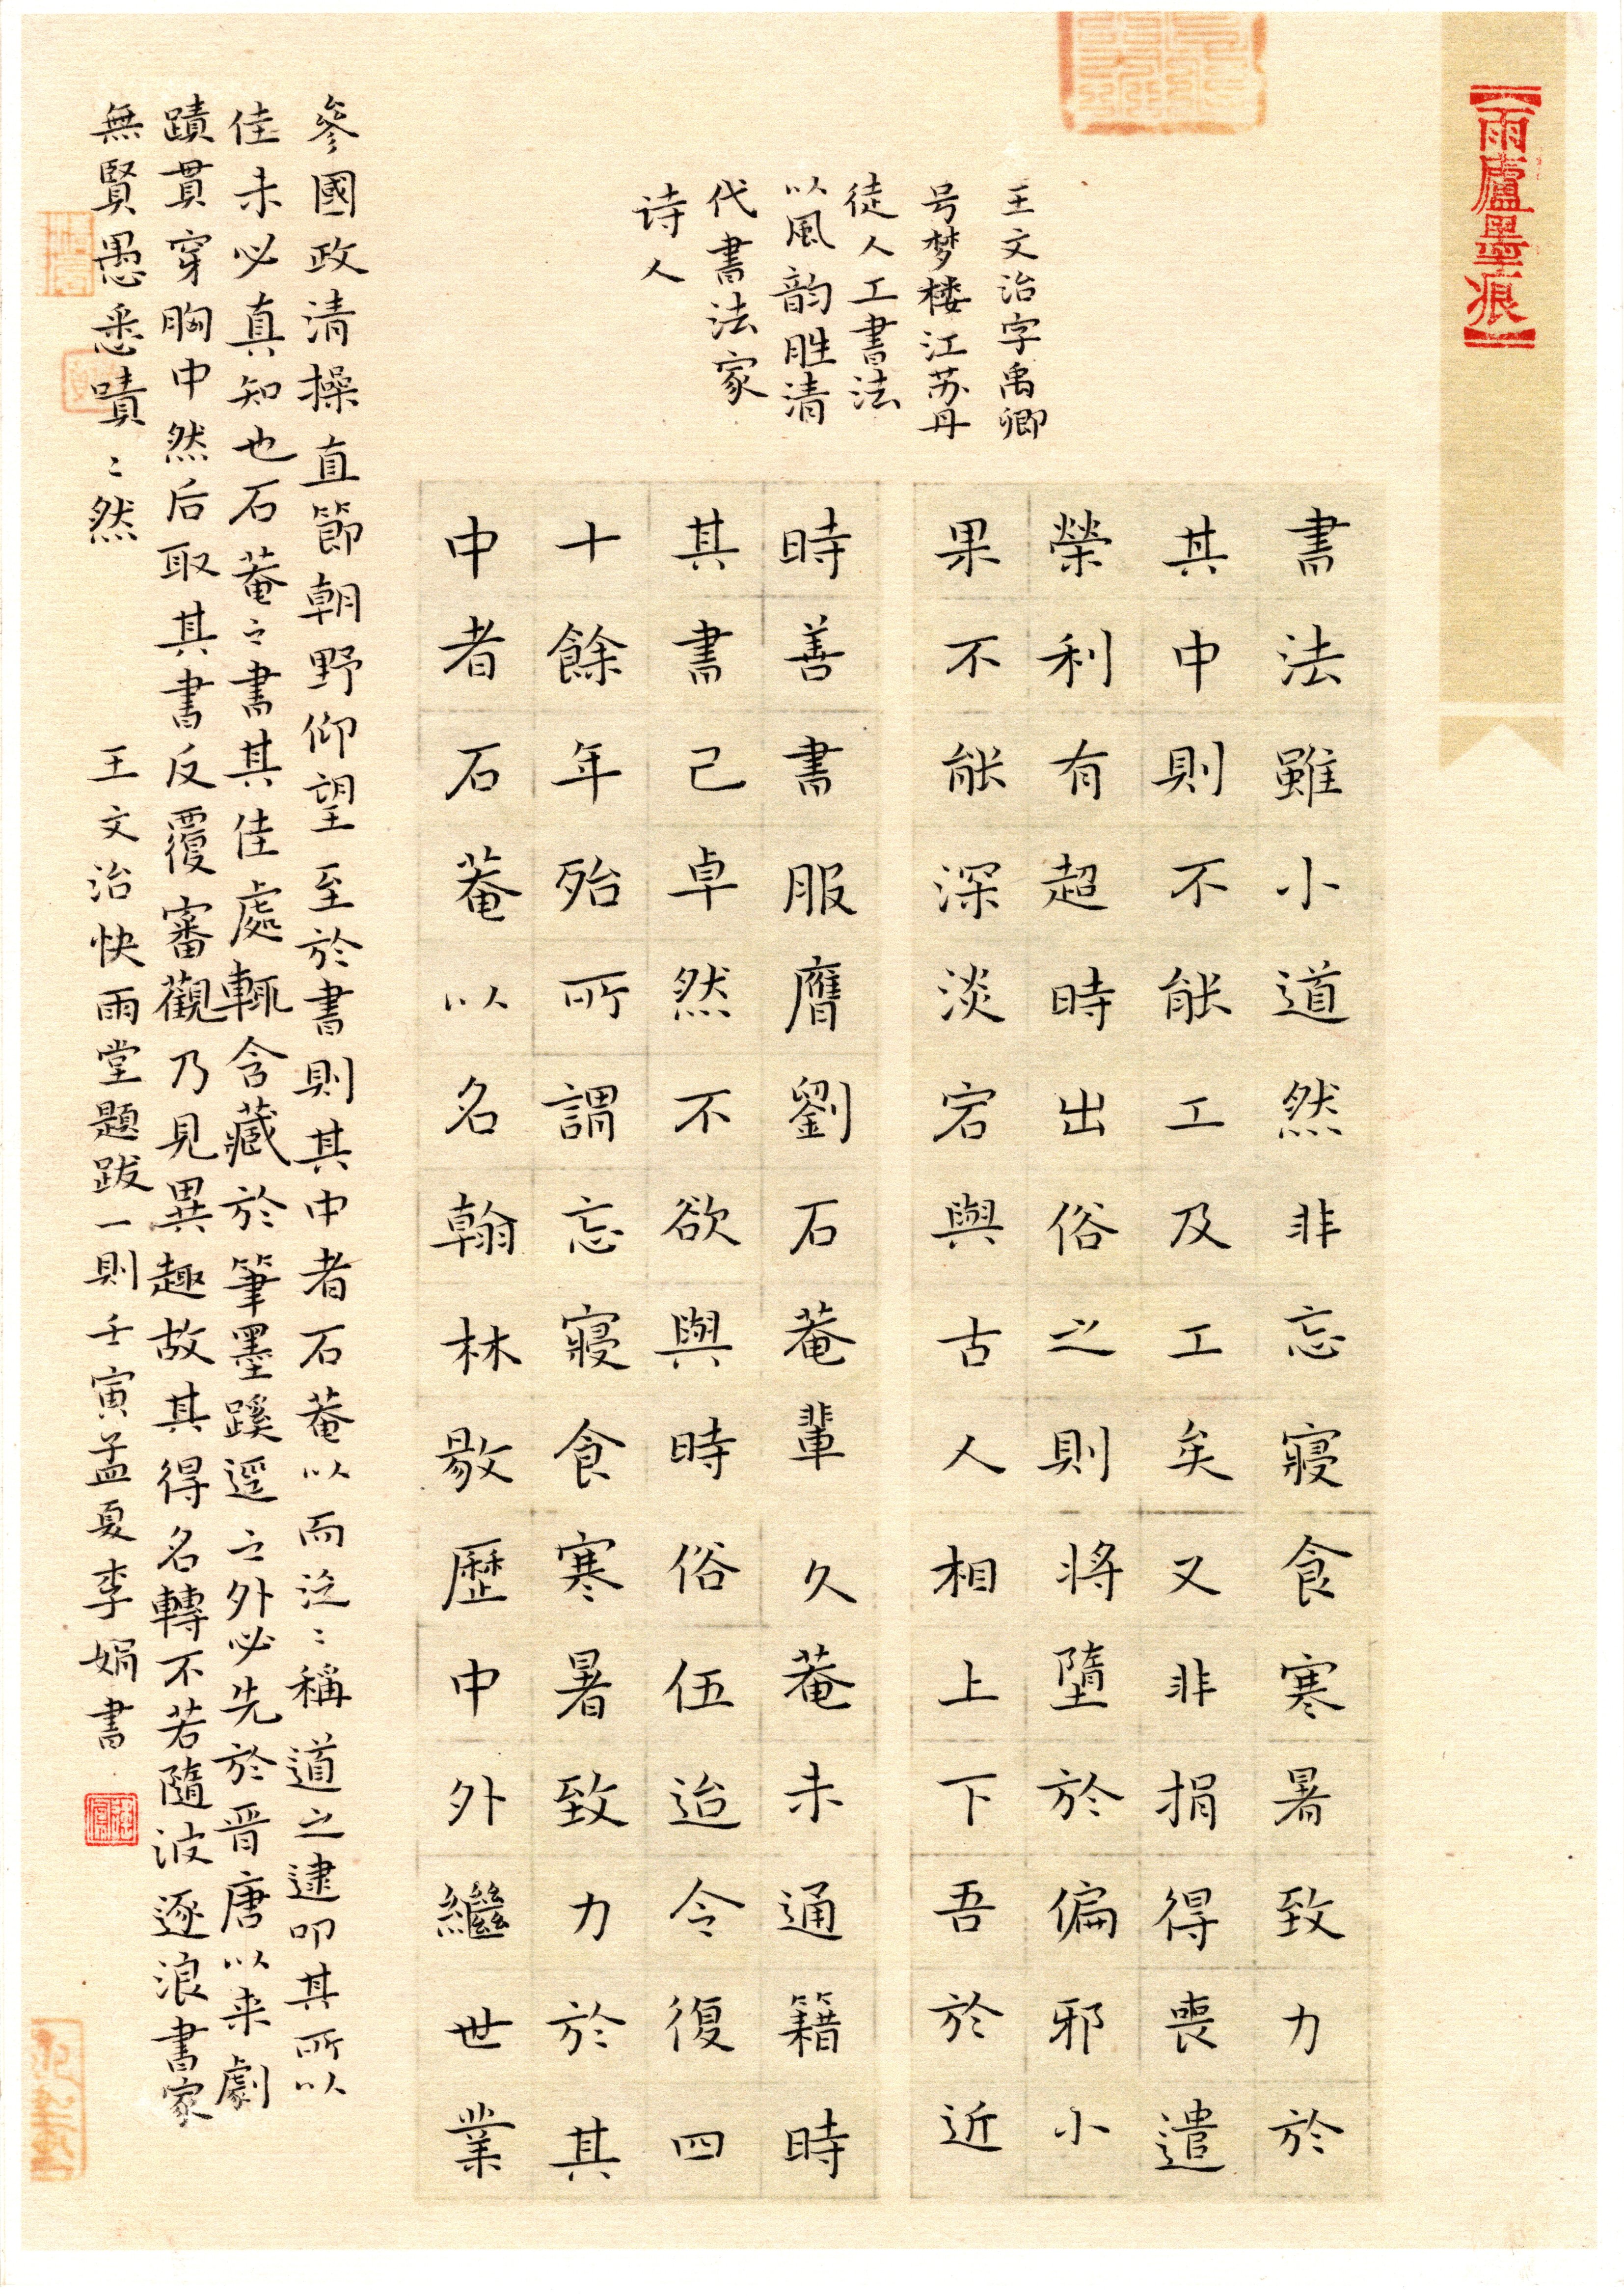 【雨廬墨痕】
王文治字禹卿
号梦楼江苏丹
徒人工書法
以風韵胜清
代書法家
诗人
書法雖小道然非忘寢食寒暑致力於
其中則不能工及工矣又非捐得喪遣
榮利有超時出俗之則將墮於偏邪小
果不能深淡宕與古人相上下吾於近
時善書服膺劉石菴輩久菴未通籍時
其書己卓然不欲與時俗伍迨今復四
十餘年殆所謂忘寢食寒暑致力於其
中者石菴以名翰林敭歷中外繼世業
參國政清操直節朝野仰望至於書則其中者石菴以而泛〻稱道之逮叩其所以
佳未必真知也石菴之書其佳處輒含藏於筆墨蹊逕之外必先於晋唐以来劇
蹟貫穿胸中然后取其書反覆審觀乃見異趣故其得名轉不若隨波逐浪書家
無賢愚悉嘖〻然　王文治快雨堂題跋一則壬寅孟夏李娟書